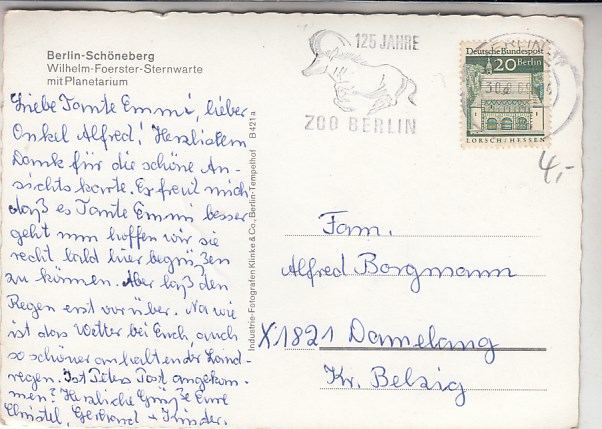 Berlin-Schöneberg
Wilhelm-Foerster-Sternwarte
mit Planetarium
Liebe Tante Emmi, lieber
Onkel Alfred! Herzlichen
Dank für die schöne An-
sichtskarte. Es freut mich
daß es Tante Emmi besser
geht nun hoffen wir sie
recht bald hier begrüßen
zu können. Aber laß den
Regen erst vorüber. Na wie
ist das Wetter bei Euch, auch
so schöner anhaltender Land-
regen. Ist Post angekom-
men? Herzliche Grüße Eure
Christel, Gerhard u. Kinder.
Industrie-Fotografen Klinke & Co., Berlin-Tempelhof B 421 a
125 JAHRE
ZOO BERLIN
Deutsche Bundespost
20 Berlin
LORSCH/HESSEN
BERLIN
4,-
Fam.
Alfred Borgmann
X 1821 Damelang
Kr. Belzig